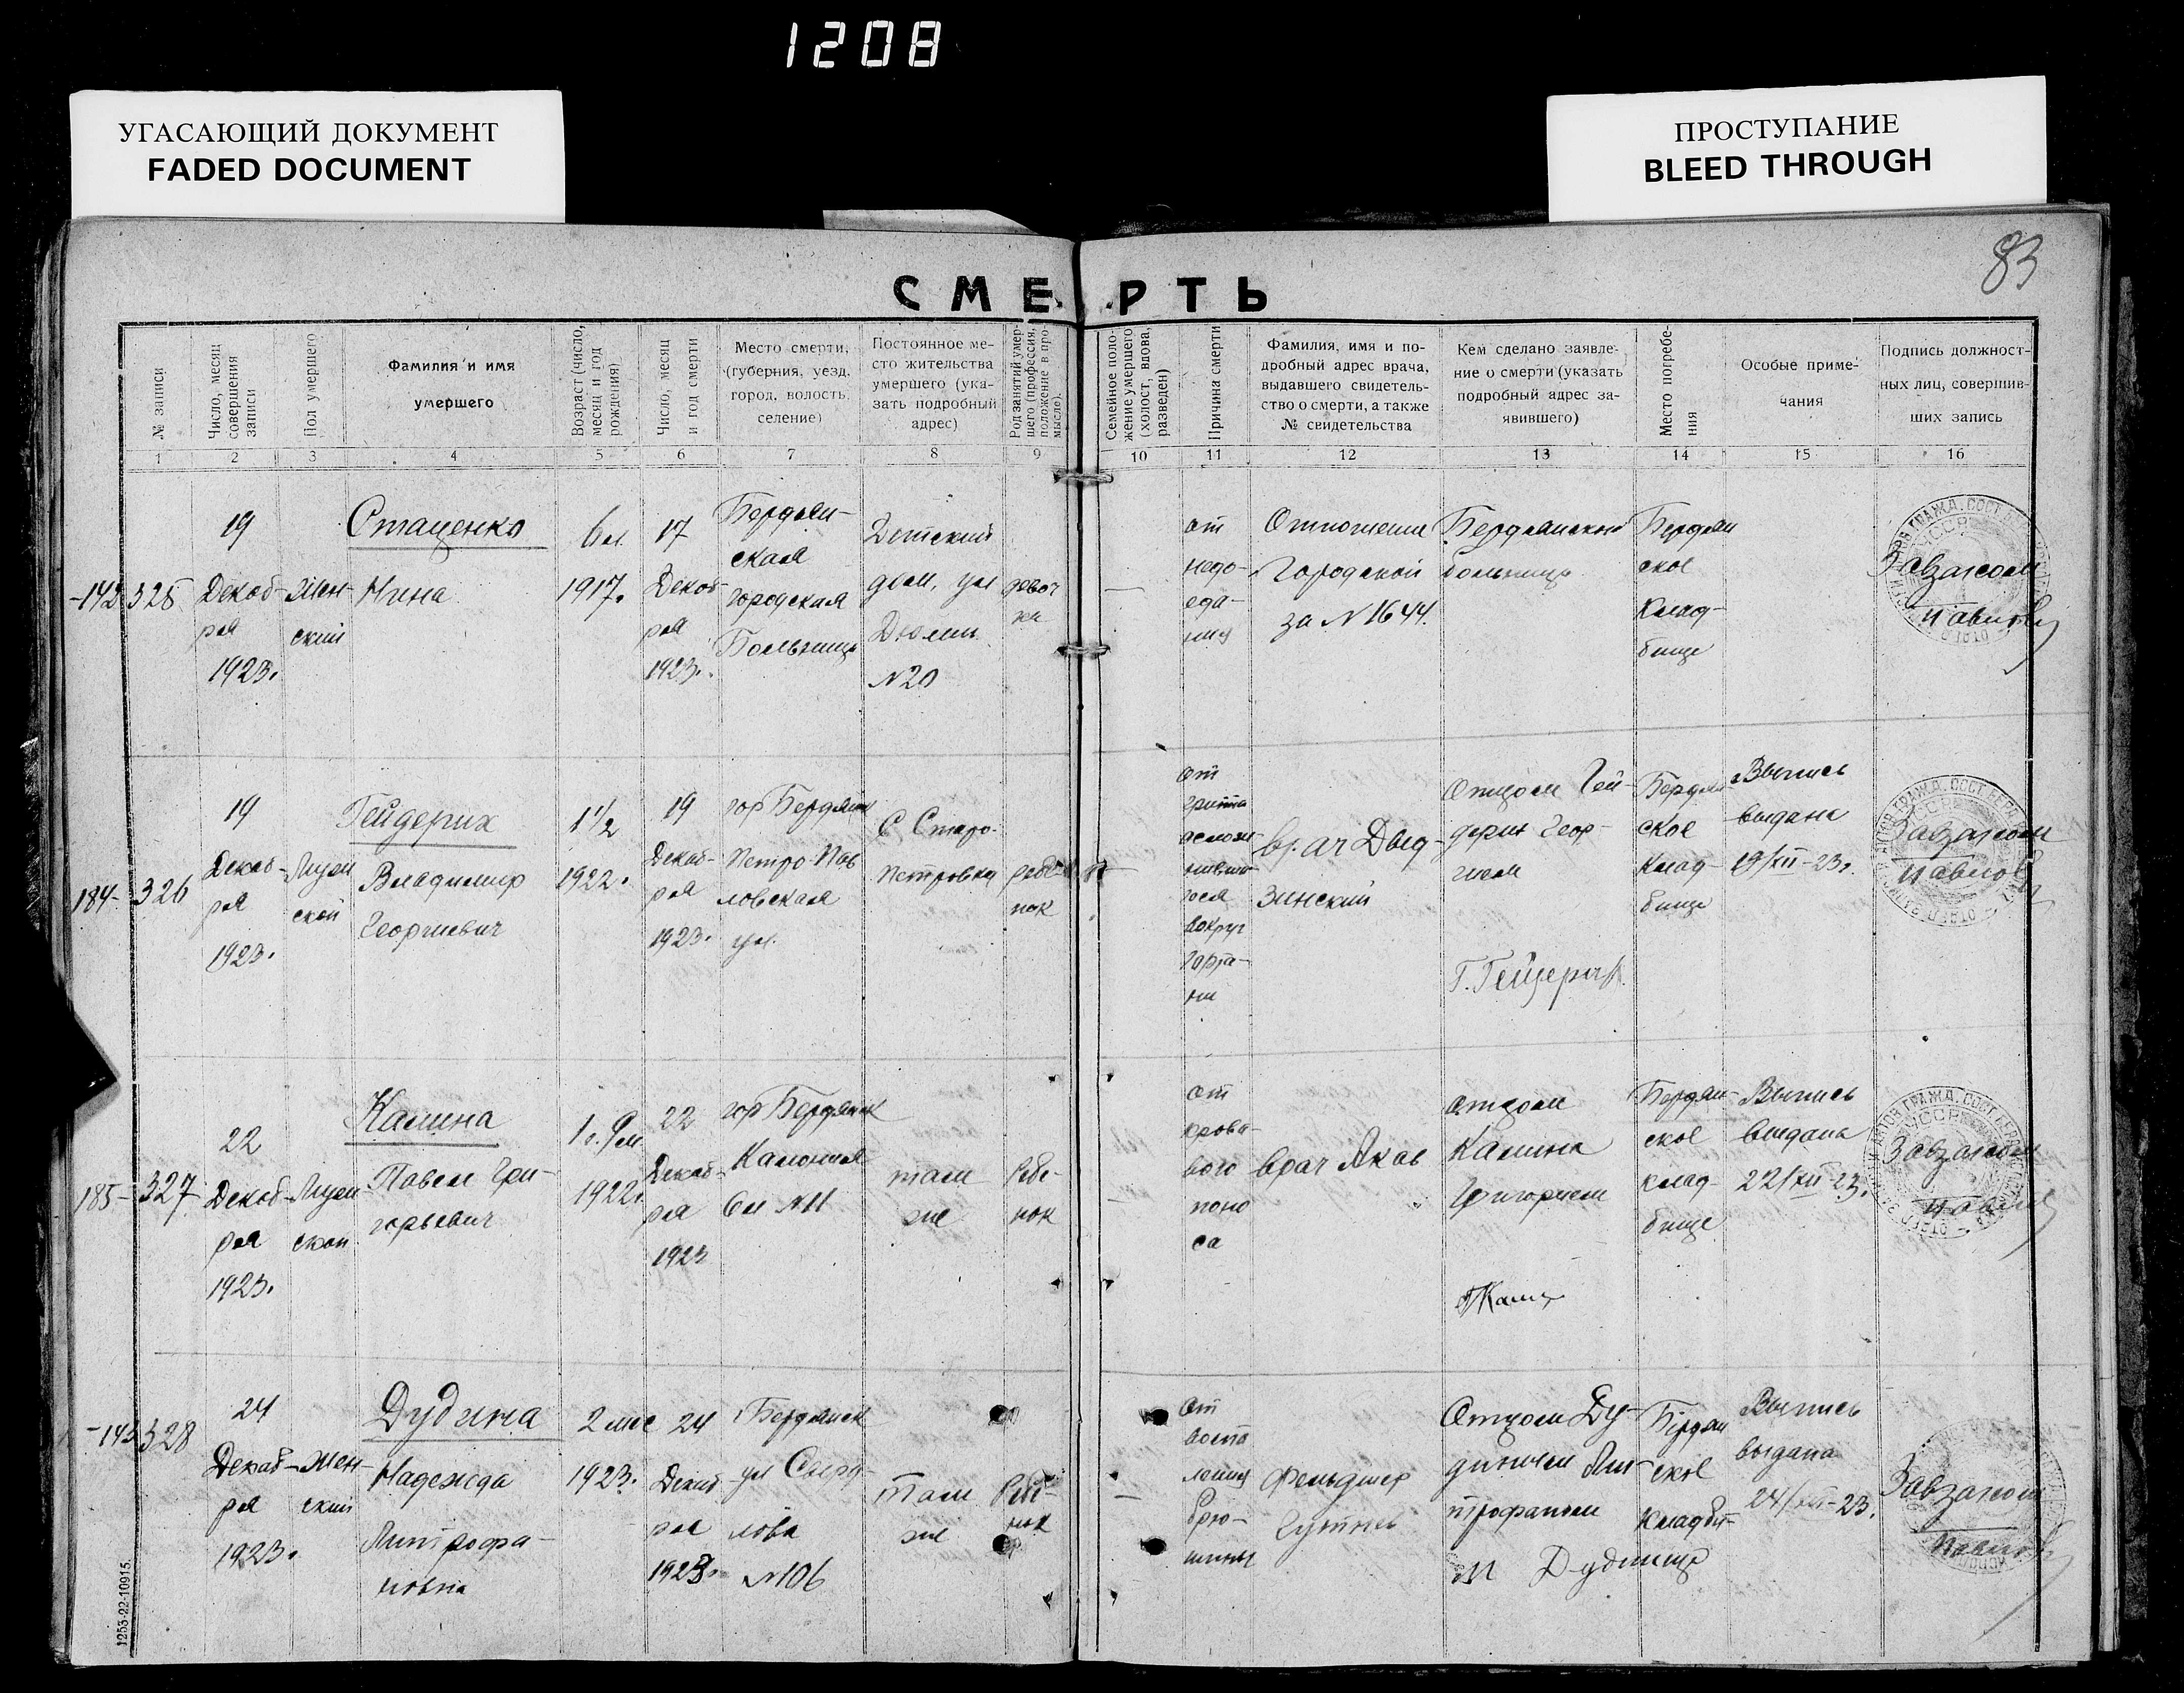 1208
УГАСАЮЩИЙ ДОКУМЕНТ
FADED DOCUMENT
ПРОСТУПАНИЕ
BLEED THROUGH
83
СМЕРТЬ
№ записи
Число, месяц
совершения
записи
Пол умершего
Фамилия и имя
умершего
Возраст (число,
месяц и год
рождения)
Число, месяц
и год смерти
Место смерти,
(губерния, уезд,
город, волость,
селение)
Постоянное ме-
сто жительства
умершего (ука-
зать подробный
адрес)
Род занятий умер-
шего (профессия,
положение в про-
мысле).
Семейное поло-
жение умершего
(холост, вдова,
разведен)
Причина смерти
Фамилия, имя и по-
дробный адрес врача,
выдавшего свидетель-
ство о смерти, а также
№ свидетельства
Кем сделано заявле-
ние о смерти (указать
подробный адрес за-
явившего)
Место погребе-
ния
Особые приме-
чания
Подпись должност-
ных лиц, совершив-
ших запись
1 2 3 4 5 6 7 8 9 10 11 12 13 14 15 16
325
19
Декаб-
ря
1923.
Жен-
ский
Стаценко
Нина
6 л.
1917.
17
Декаб-
ря
1923.
Бердян-
ская
городская
Больница
Детский
дом, ул
№20
девоч
ка
от
недо-
еда-
ния
Отношение
Городской
за №1644.
Бердянской
больницы
Бердян
ское
Клад-
бище
Завзагсом
Павлов
184-
326
19
Декаб-
ря
1923.
Мужс
ской
Гейдерих
Владимир
Георгиевич
1½
1922.
19
Декаб-
ря
1923.
гор Бердянск
Петро-Пав
ловская
ул.
С Старо-
Петровка
ребе
нок
от
гриппа
осложн-
ивше-
гося
вокруг
горта-
ни
врач Двид-
зинский
Отцом Гей-
дерих Геор-
гием
Г. Гейдерих
Бердян-
ское
Клад-
бище
Выпись
выдана
19/XII-23г.
Завзагсом
Павлов
185-
327
22
Декаб-
ря
1923.
Мужс
ской
Калина
Павел Гри-
горьевич
1 г. 9 м.
1922.
22
Декаб-
ря
1923
гор Бердянск
Колония
№11
там
же
Ребе-
нок
от
крова-
вого
поно
са
врач Яков
отцом
Калина
Григорием
Бердян-
ское
клад-
бище
Выпись
выдана
22/XII-23.
Завзагсом
Павлов
328
24
Декаб-
ря
1923.
Жен-
ский
Дудина
Надежда
Митрофа-
новна
2 мес
1923.
24
Декаб
ря
1923.
Бердянск
ул Сверд-
лова
№106
там
же
Ребе-
нок
от
воспа
ления
брю-
шины
Фельдшер
Отцом Ду-
диным Ми-
трофаном
М Дудин
Бердян
ское
Кладби-
Выпись
выдана
24/XII-23.
Завзагсом
Павлов
1253-22-10915.